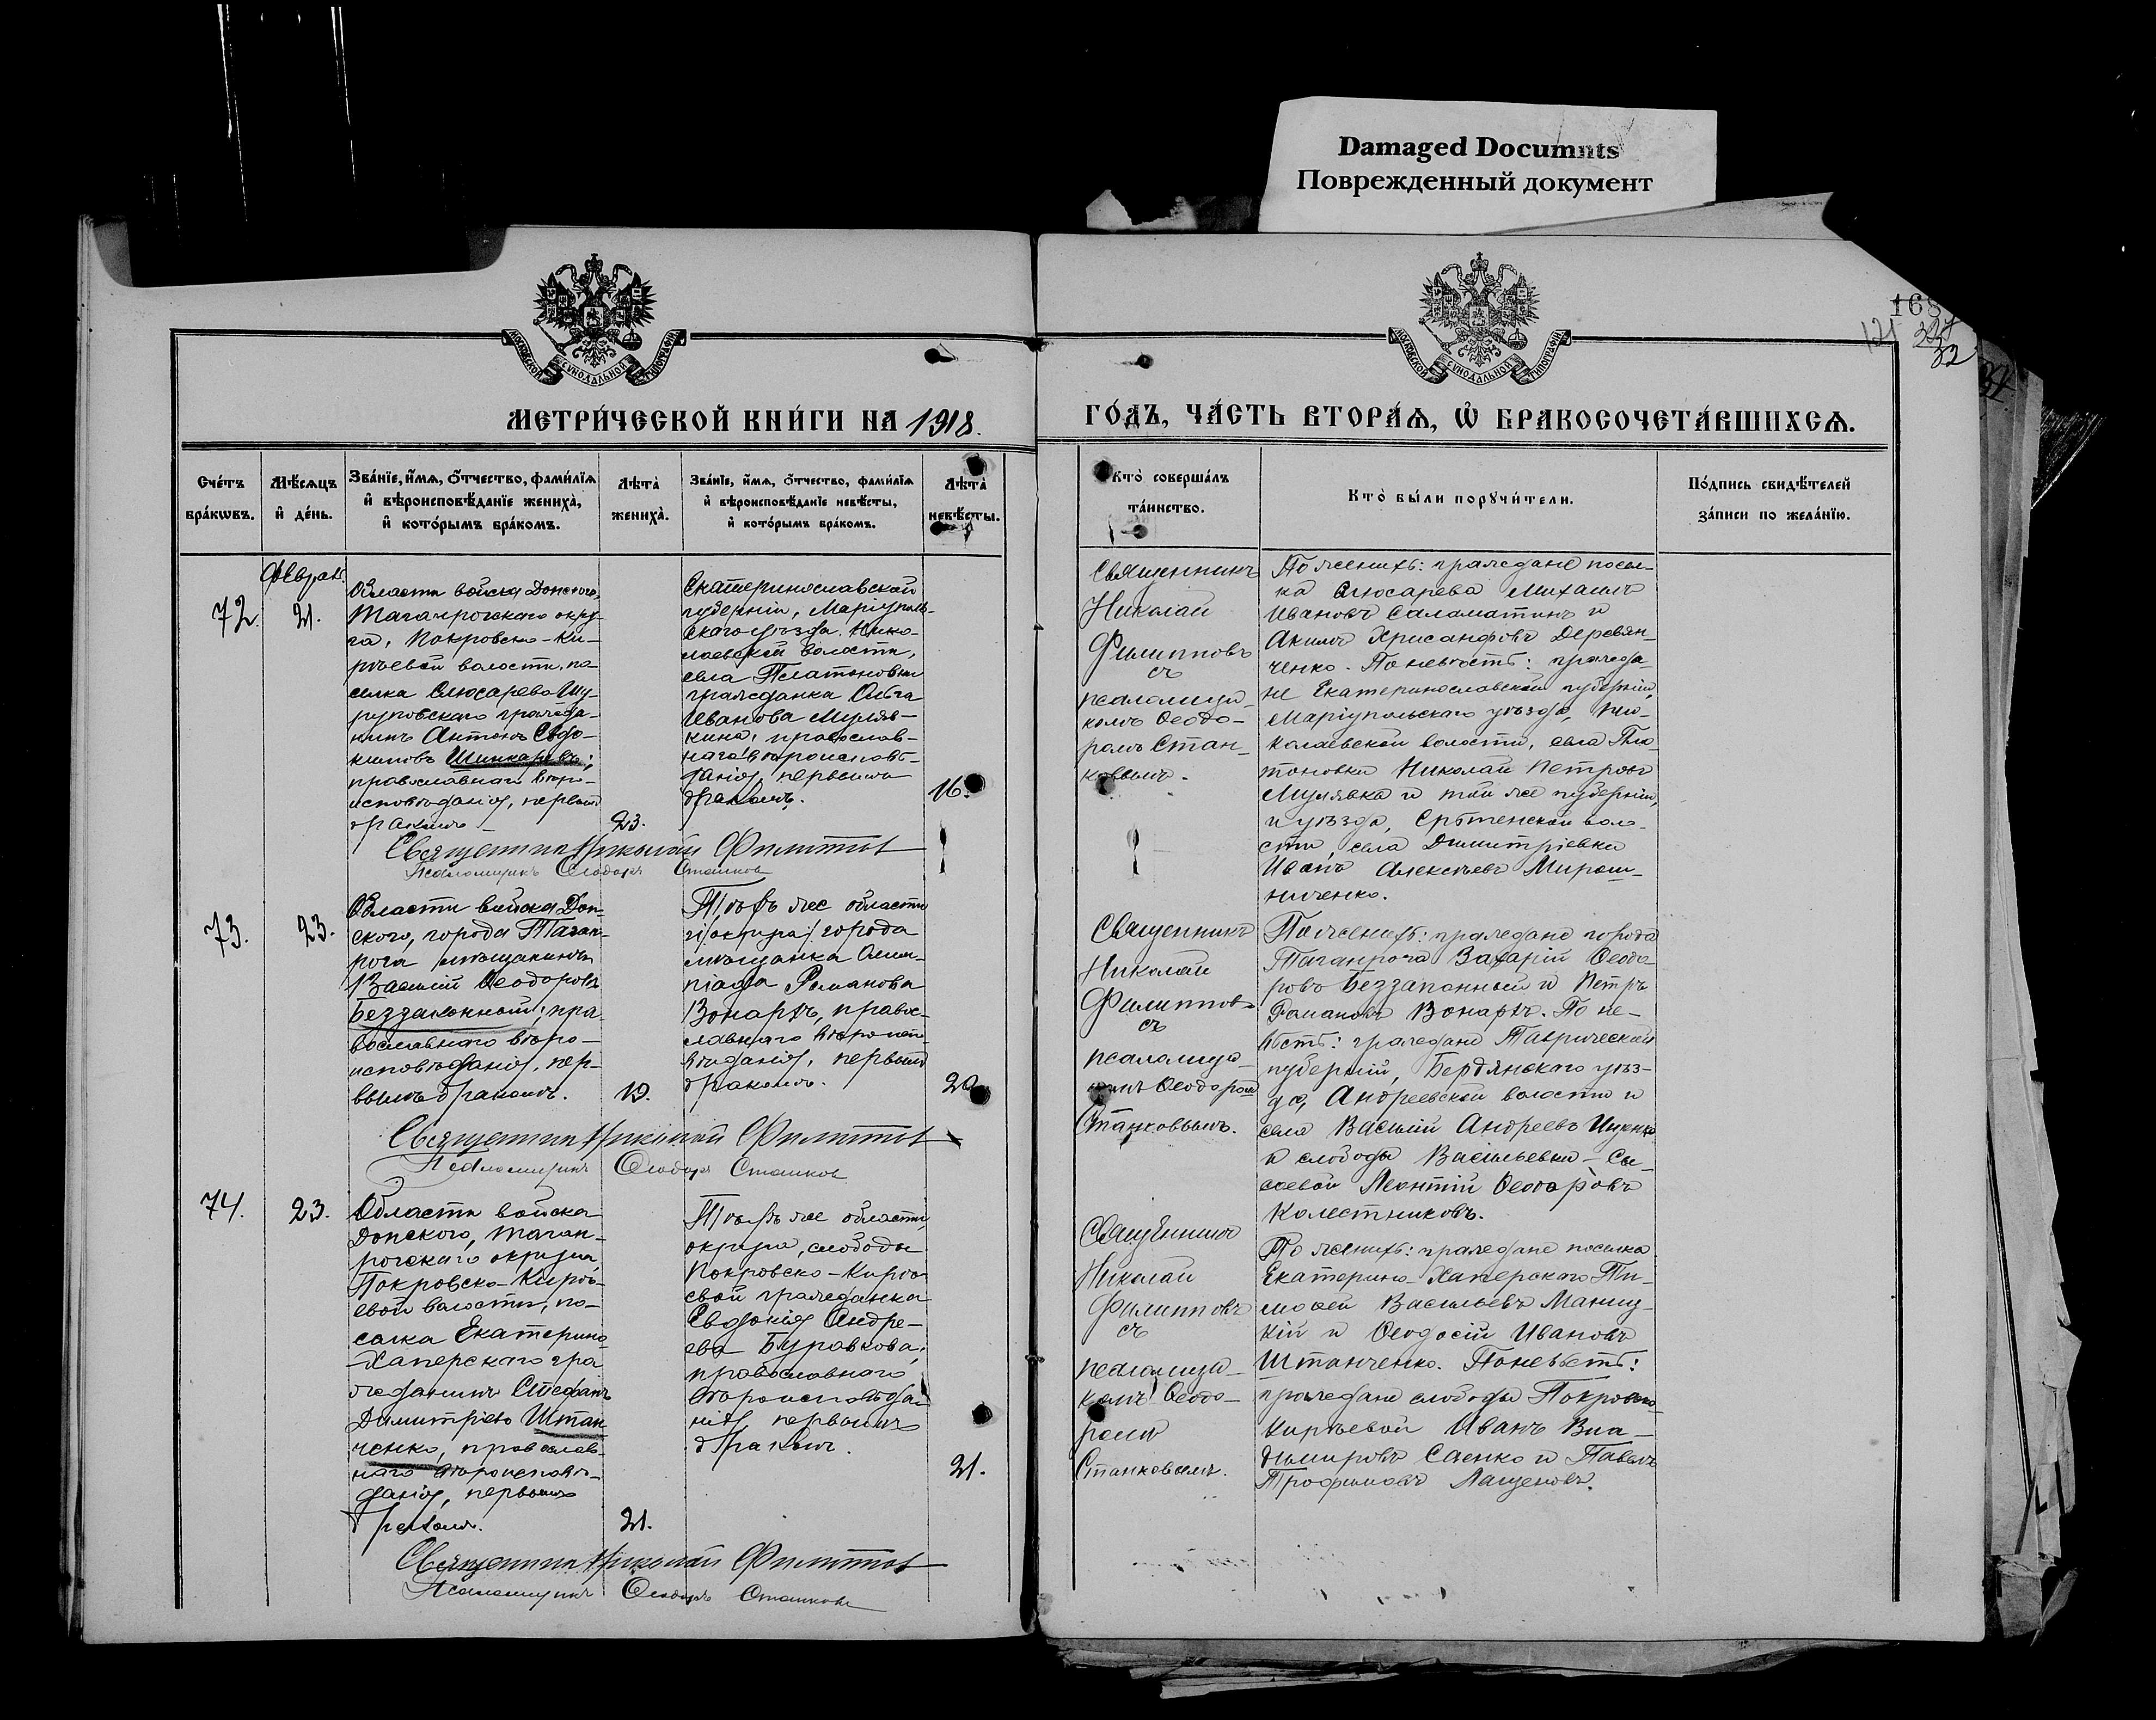 Damaged Documnts
Поврежденный документ
МОСКОВСКОЙ СУНОДАЛЬНОЙ ТИПОГРАФІИ
МОСКОВСКОЙ СУНОДАЛЬНОЙ ТИПОГРАФІИ
МЕТРИ́ЧЕСКОЙ КНИ́ГИ НА 1918.
ГО́ДЪ, ЧА́СТЬ ВТОРА́Ѧ, Ѽ БРАКОСОЧЕТА́ВШИХСѦ.
Сче́тъ
бра́кѡвъ.
Мѣ́сѧцъ
и҆ де́нь.
Зва́нїе, и҆́мѧ, ѻ҆́тчество, фами́лїѧ
и҆ вѣроисповѣ́данїе жениха̀,
и҆ кото́рымъ бра́комъ.
Лѣ́та̀
жениха̀.
Зва́нїе, и҆́мѧ, ѻ҆́тчество, фами́лїѧ
и҆ вѣроисповѣ́данїе невѣ́сты,
и҆ кото́рымъ бра́комъ.
Лѣ́та̀
невѣ́сты.
Кто̀ соверша́лъ
та́инство.
Кто̀ бы́ли порꙋчи́тели.
По́дпись свидѣ́телей
за́писи по жела́нїю.
Феврал.
72.
21.
Области войска Донского,
Таганрогскаго окру-
га, Покровско-Ки-
рѣевой волости, по-
селка Слюсарево-Шу-
руповскаго гражда-
нинъ Антонъ Евдо-
кимовъ Шинкаревъ;
православнаго вѣро-
исповѣданія, первымъ
бракомъ
23.
Екатеринославской
губерніи, Маріуполь-
скаго уѣзда, Нико-
лаевской волости,
села Платоновки
гражданка Ольга
Иванова Муляв-
кина, православ-
наго вѣроисповѣ-
данія, первымъ
бракомъ.
16.
Священникъ
Николай
Филипповъ
съ
псаломщи-
комъ Ѳеодо-
ромъ Стан-
ковымъ.
По женихѣ: граждане посел-
ка Слюсарева Михаилъ
Ивановъ Саламатинъ и
Акимъ Хрисанфовъ Деревян-
ченко. По невѣстѣ: гражда-
не Екатеринославской губерніи,
Маріупольскаго уѣзда, Ни-
колаевской волости, села Пла-
тоновки Николай Петровъ
Мулявка и той же губерніи,
и уѣзда, Срѣтенской воло-
сти, села Димитріевки
Иванъ Алексѣевъ Мирош-
ниченко.
Священникъ Николай Филиппов
Псаломщикъ Ѳеодоръ Станков
73.
23.
Области войска Дон-
скаго, города Таган-
рога мѣщанинъ
Василій Ѳеодоровъ
Беззаконный; пра-
вославнаго вѣро-
исповѣданія, пер-
вымъ бракомъ.
19.
Тѣхъ же области
и округа, города
мѣщанка Олим-
піада Романова
Вонархъ, правос-
лавнаго вѣроиспо-
вѣданія, первымъ
бракомъ.
20.
Священникъ
Николай
Филипповъ
съ
псаломщи-
комъ Ѳеодоромъ
Станковымъ.
По женихѣ: граждане города
Таганрога Захарій Ѳеодо-
ровъ Беззаконный и Петръ
Романовъ Вонархъ. По не-
вѣстѣ: граждане Таврической
губерніи, Бердянскаго уѣз-
да, Андреевской волости и
села Василій Андреевъ Ищенко
и слободы Васильевки-Сы-
соевой Леонтій Ѳеодоровъ
Колестниковъ.
Священникъ Николай Филиппов
Псаломщикъ Ѳеодоръ Станков
74.
23.
Области войска
Донского, Таган-
рогскаго округа
Покровско-Кирѣ-
евой волости, по-
селка Екатерино-
-Хаперскаго гра
жданинъ Стефанъ
Димитріевъ Штан-
ченко, православ-
наго вѣроисповѣ-
данія, первымъ
бракомъ.
21.
Тѣхъ же области,
округа, слободы
Покровско-Кирѣ-
евой гражданка
Евдокія Андре-
ева Буравкова,
православнаго
вѣроисповѣда-
нія, первымъ
бракомъ.
21.
Священникъ
Николай
Филипповъ
съ
псаломщи-
комъ Ѳеодо-
ромъ
Станковымъ.
По женихѣ: граждане поселка
Екатерино-Хаперскаго Ти-
моѳей Васильевъ Маниц-
кій и Ѳеодосій Ивановъ
Штанченко. По невѣстѣ:
граждане слободы Покровско-
Кирѣевой Иванъ Вла-
диміровъ Саенко и Павелъ
Трофимовъ Лащеновъ.
Священникъ Николай Филиппов
Псаломщикъ Ѳеодоръ Станков